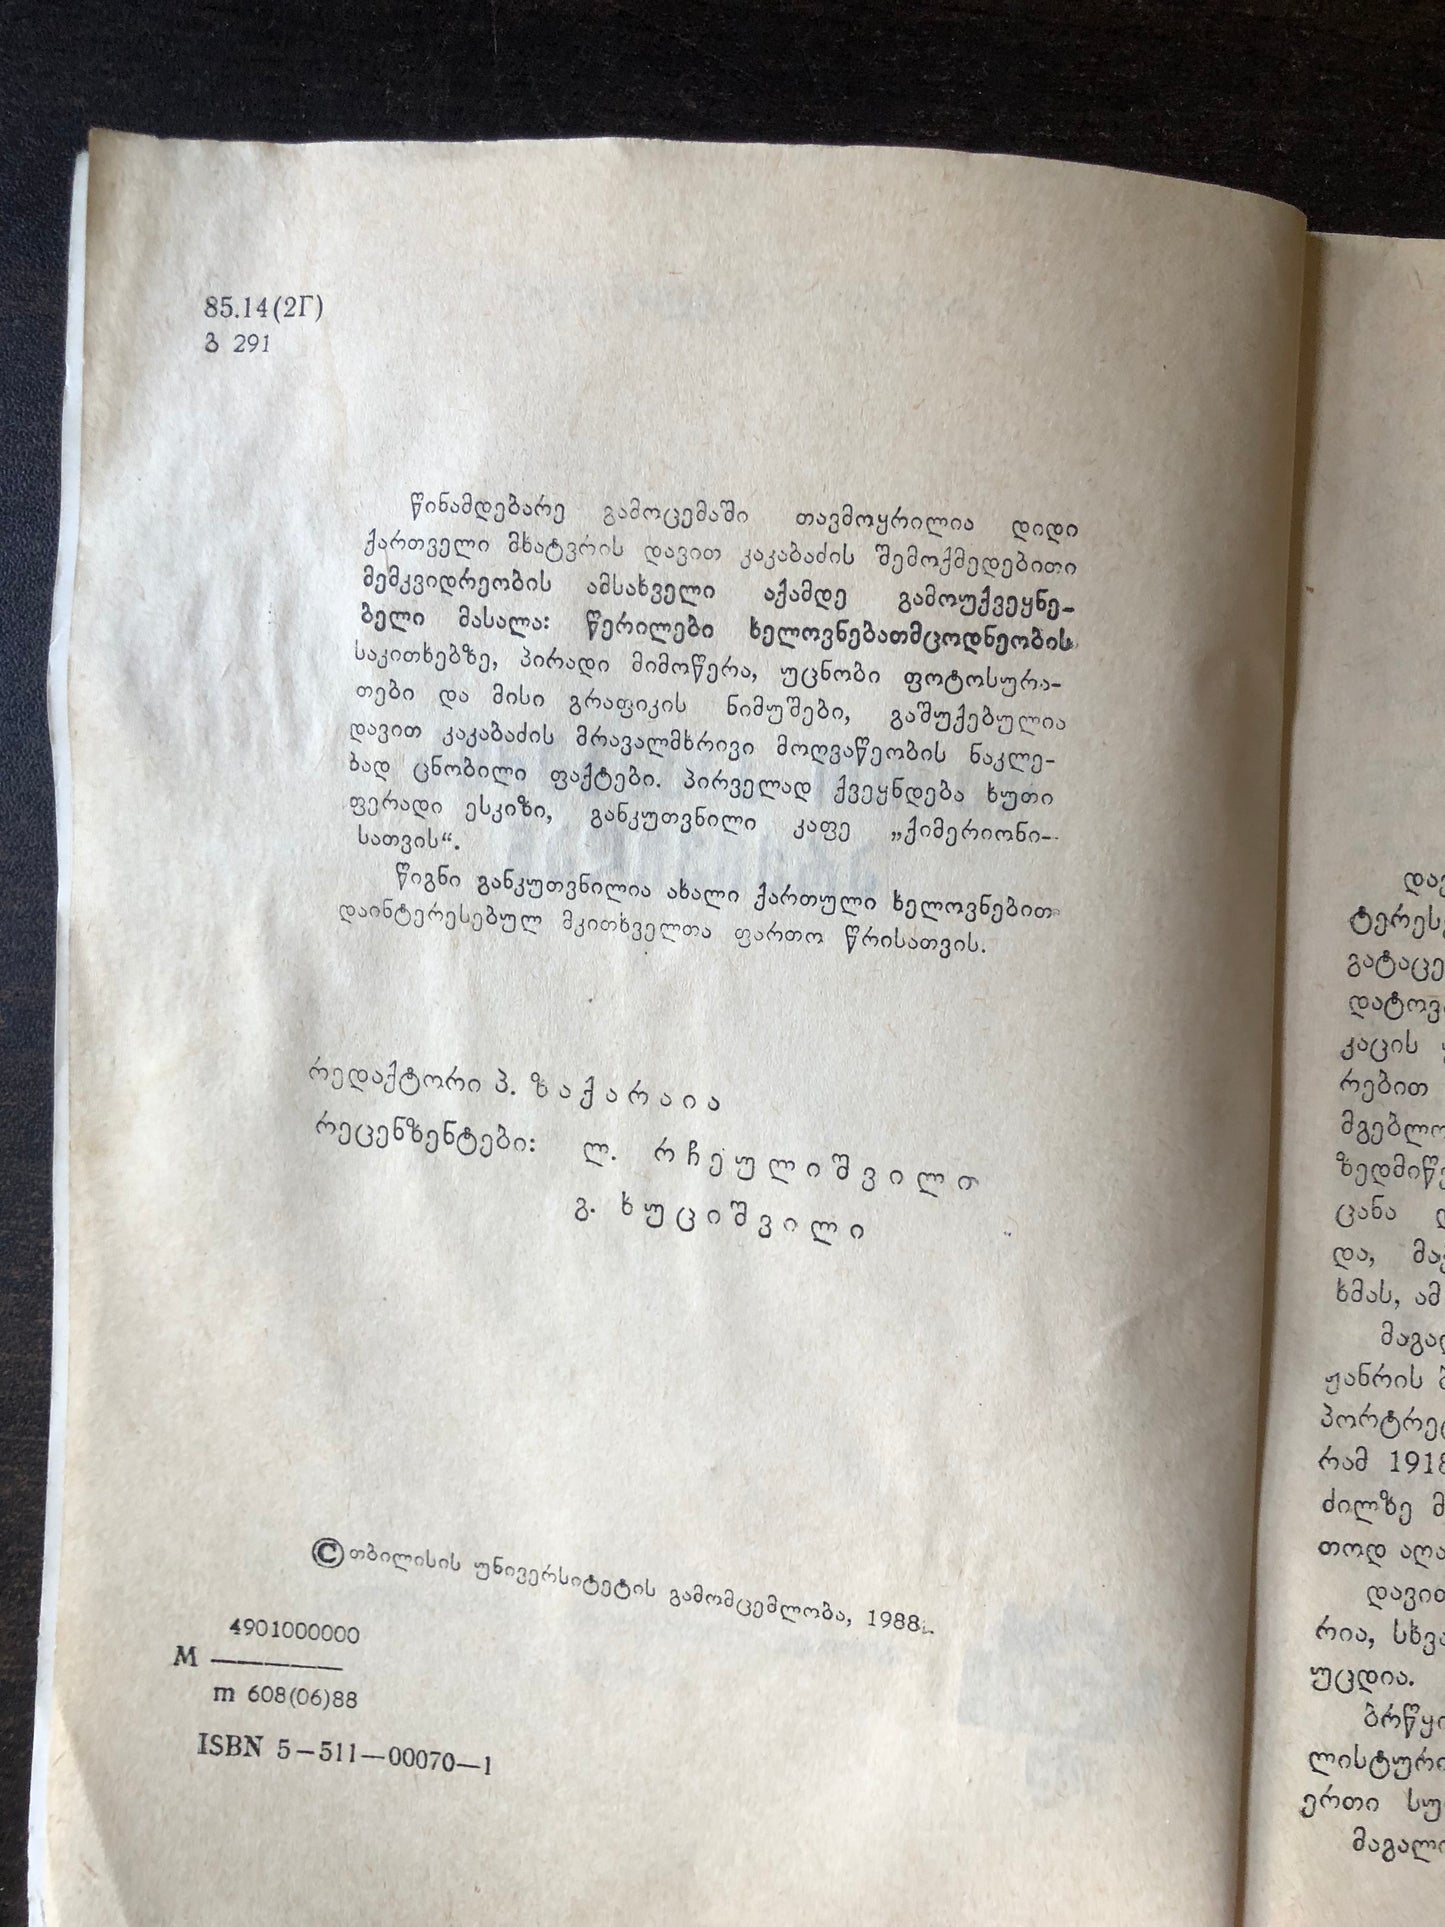 85.14(2Г)
გ 291
წინამდებარე გამოცემაში თავმოყრილია დიდი
ქართველი მხატვრის დავით კაკაბაძის შემოქმედებითი
მემკვიდრეობის ამსახველი აქამდე გამოუქვეყნე-
ბელი მასალა: წერილები ხელოვნებათმცოდნეობის
საკითხებზე, პირადი მიმოწერა, უცნობი ფოტოსურა-
თები და მისი გრაფიკის ნიმუშები, გაშუქებულია
დავით კაკაბაძის მრავალმხრივი მოღვაწეობის ნაკლე-
ბად ცნობილი ფაქტები. პირველად ქვეყნდება ხუთი
ფერადი ესკიზი, განკუთვნილი კაფე „ქიმერიონი-
სათვის“.
წიგნი განკუთვნილია ახალი ქართული ხელოვნებით
დაინტერესებულ მკითხველთა ფართო წრისათვის.
რედაქტორი პ. ზაქარაია
რეცენზენტები: ლ. რჩეულიშვილი
გ. ხუციშვილი
© თბილისის უნივერსიტეტის გამომცემლობა, 1988
4901000000
M
m 608(06)88
ISBN 5-511-00070-1
და,
ხმას, ამ
ჟანრის
რამ
ძილზე
თოდ
რია,
უცდია.
ერთი
კაცის
რებით
ცანა